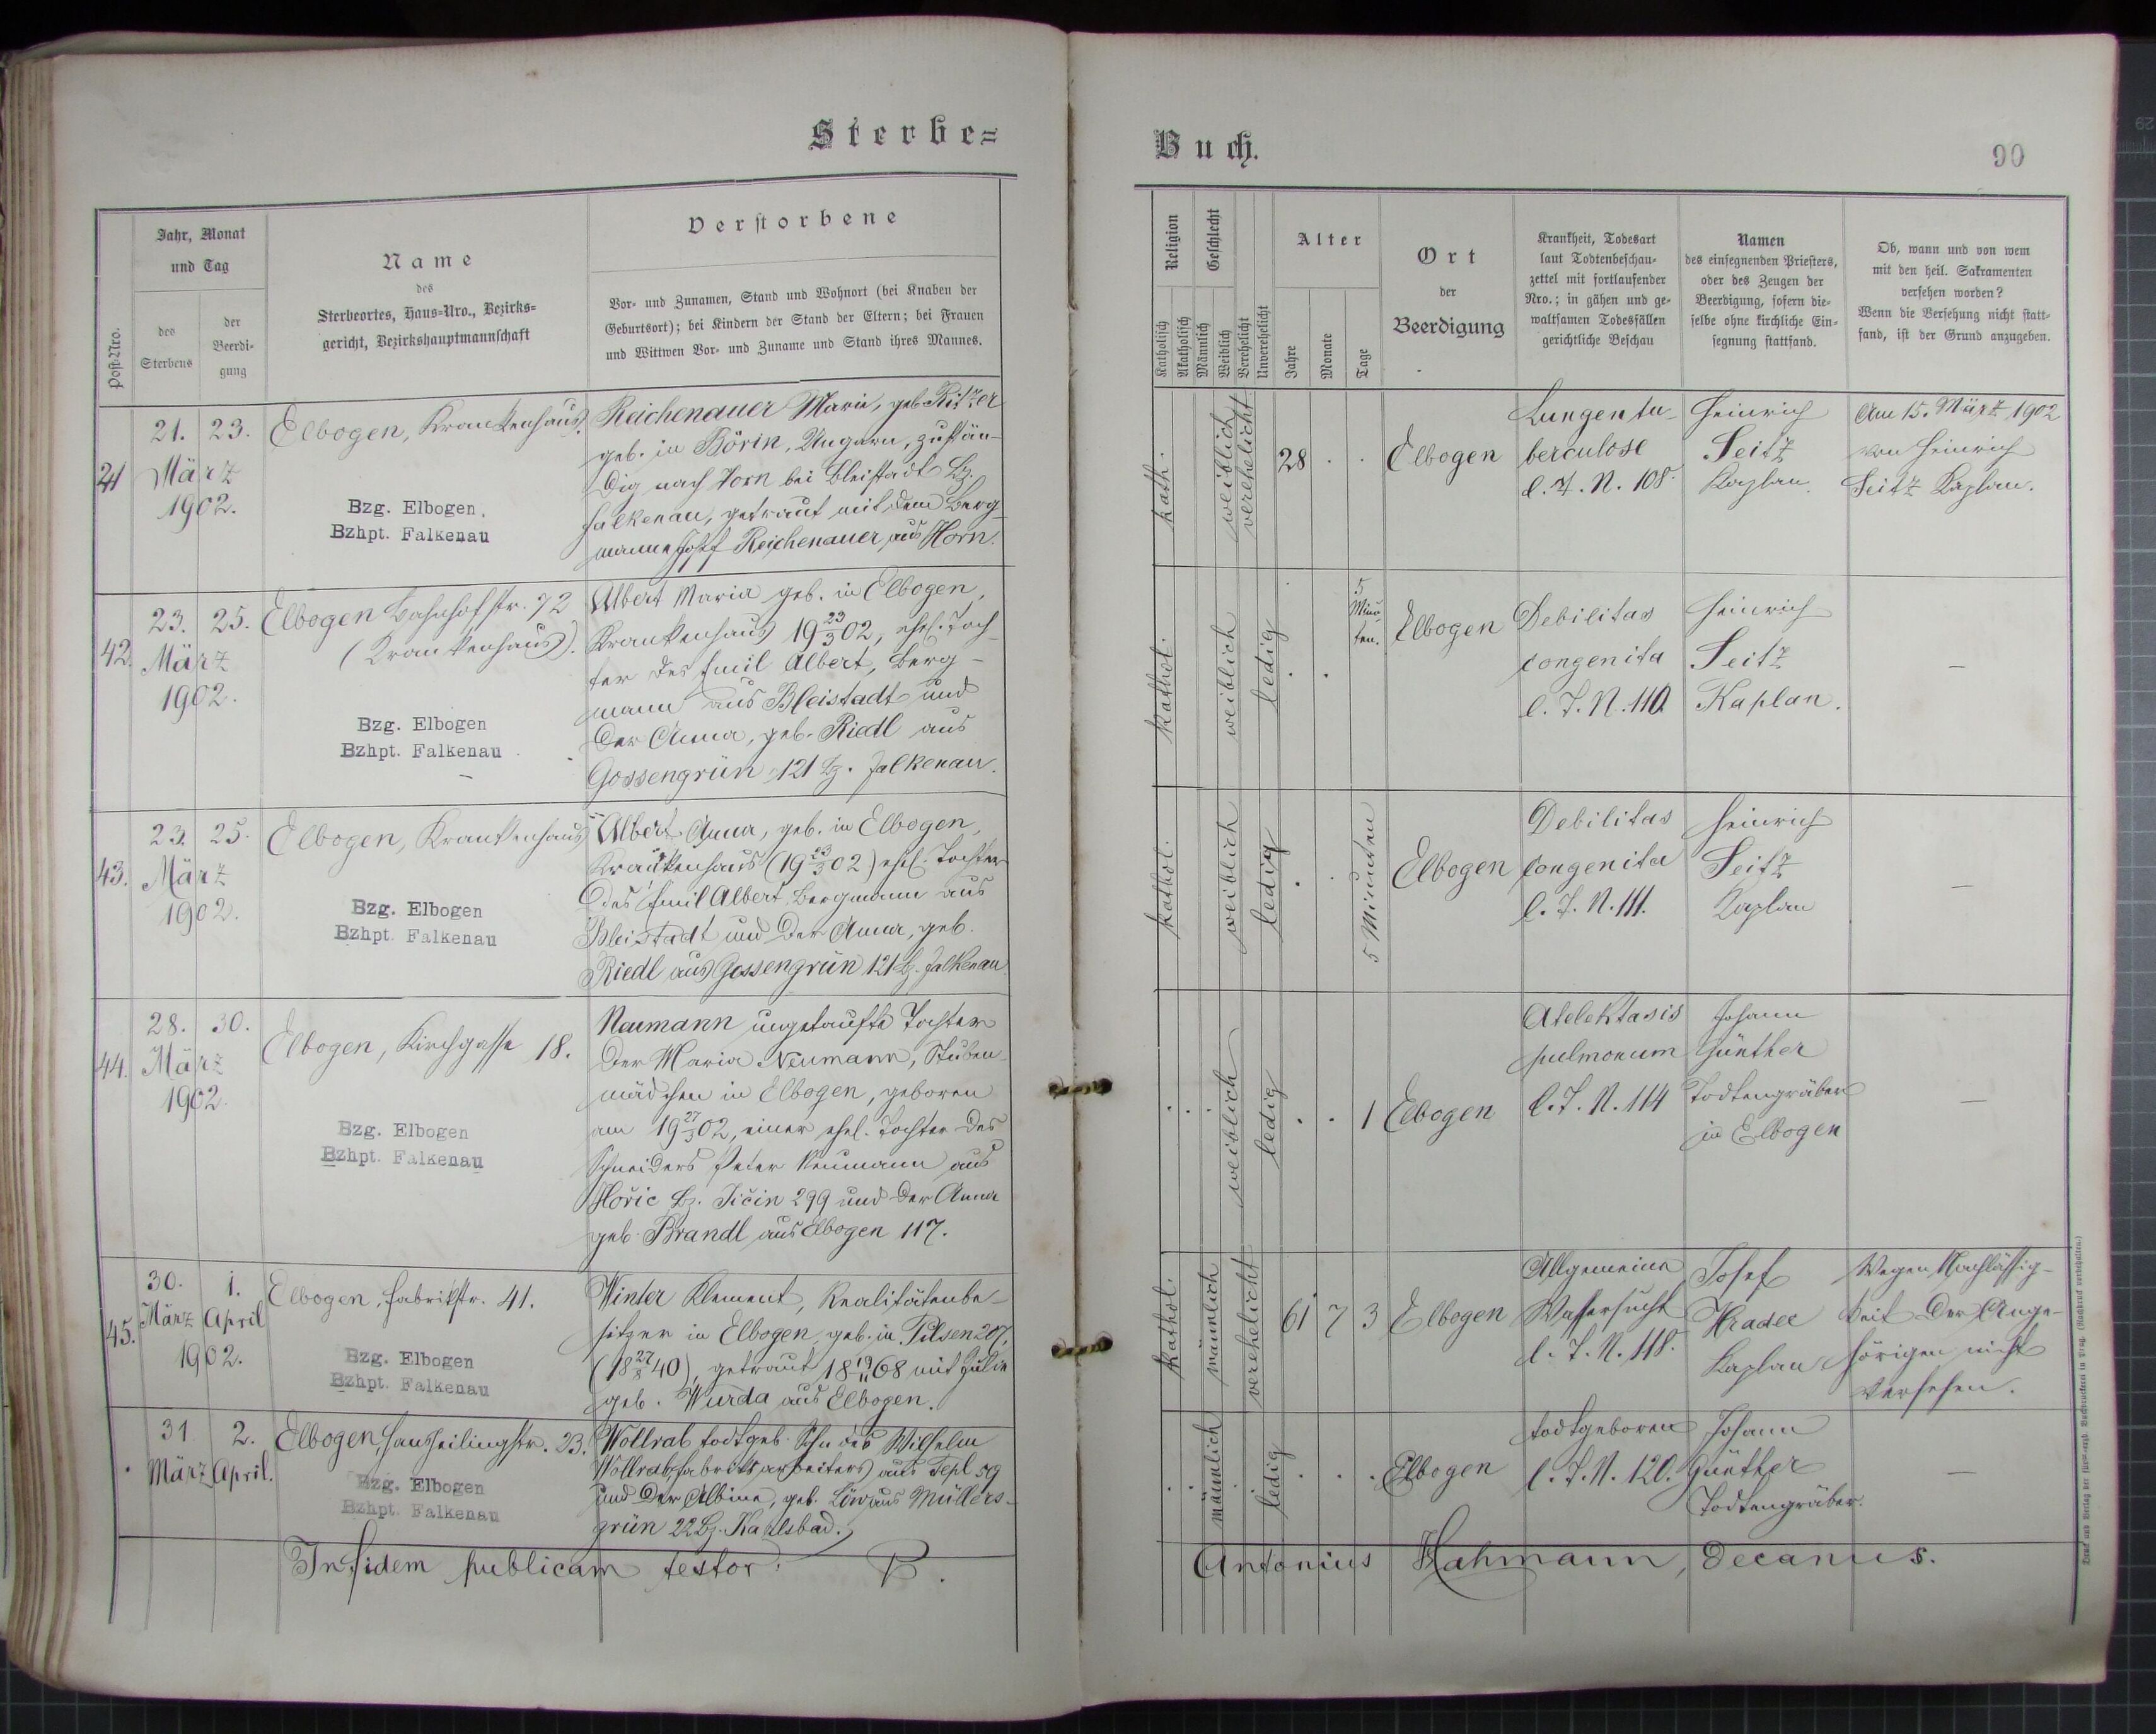 Sterbe=
Buch.
90
Post-Nro.
Jahr, Monat
und Tag
des
Sterbens
der
Beerdi-
gung
Name
des
Sterbeortes, Haus-Nro., Bezirks=
gericht, Bezirkshauptmannschaft
Verstorbene
Vor- und Zunamen, Stand und Wohnort (bei Knaben der
Geburtsort); bei Kindern der Stand der Eltern; bei Frauen
und Wittwen Vor- und Zuname und Stand ihres Mannes.
Religion
Katholisch
Akatholisch
Geschlecht
Männlich
Weiblich
Verehelicht
Unverehelicht
Alter
Jahre
Monate
Tage
Ort
der
Beerdigung
Krankheit, Todesart
laut Todtenbeschau-
zettel mit fortlaufender
Nro.; in gähen und ge-
waltsamen Todesfällen
gerichtliche Beschau
Namen
des einsegnenden Priesters,
oder des Zeugen der
Beerdigung, sofern die-
selbe ohne kirchliche Ein-
segnung stattfand.
Ob, wann und von wem
mit den heil. Sakramenten
versehen worden?
Wenn die Versehung nicht statt-
fand, ist der Grund anzugeben.
41
21. 23.
März
1902.
Elbogen, Krankenhaus.
Bzg. Elbogen.
Bzhpt. Falkenau
Reichenauer Marie, geb. Ritzer
geb. in Börin, Ungarn, zustän-
dig nach Horn bei Bleistadt Bz.
Falkenau, getraut mit dem Berg-
manne Josef Reichenauer aus Horn.
kath.
weiblich
verehelicht
28 . .
Elbogen
Lungentu-
berculose
l. T. N. 108.
Heinrich
Seitz
Kaplan.
Am 15. März 1902
von Heinrich
Seitz Kaplan.
42.
23. 25.
März
1902.
Elbogen Bahnhofstr. 72
(Krankenhaus).
Bzg. Elbogen
Bzhpt. Falkenau
Albert Maria geb. in Elbogen,
Krankenhaus 19 23/3 02, ehel. Toch-
ter des Emil Albert, Berg-
mann aus Bleistadt und
der Anna, geb. Riedl aus
Gossengrün 121 Bz. Falkenau.
kathol.
weiblich
ledig
. .
5
Minu-
ten.
Elbogen
Debilitas
congenita
l. T. N. 110
Heinrich
Seitz
Kaplan.
–
43.
23. 25.
März
1902.
Elbogen, Krankenhaus
Bzg. Elbogen
Bzhpt. Falkenau
Albert Anna, geb. in Elbogen,
Krankenhaus (19 23/3 02) ehel. Tochter
des Emil Albert, Bergmann aus
Bleistadt und der Anna, geb.
Riedl aus Gossengrün 121 Bz. Falkenau
kathol.
weiblich
ledig
. .
5 Minuten
Elbogen
Debilitas
congenita
l. T. N. 111.
Heinrich
Seitz
Kaplan
–
44.
28. 30.
März
1902.
Elbogen, Kirchgasse 18.
Bzg. Elbogen
Bzhpt. Falkenau
Neumann ungetaufte Tochter
der Maria Neumann, Stuben-
mädchen in Elbogen, geboren
am 19 27/3 02, einer ehel. Tochter des
Schneiders Peter Neumann aus
Hořic Bz. Jičin 299 und der Anna
geb. Brandl aus Elbogen 117.
. . .
weiblich
ledig
. . 1
Elbogen
Atelektasis
pulmonum
l. T. N. 114
Johann
Günther
Todtengräber
in Elbogen
–
45.
30. 1.
März April
1902.
Elbogen, Fabrikstr. 41.
Bzg. Elbogen
Bzhpt. Falkenau
Winter Klement, Realitätenbe-
sitzer in Elbogen, geb. in Pilsen 207,
(18 27/8 40), getraut 18 19/11 68 mit Julie
geb. Wurda aus Elbogen.
kathol.
männlich
verehelicht
61 7 3
Elbogen
Allgemeine
Wassersucht
l. T. N. 118.
Josef
Hradec
Kaplan
Wegen Nachlässig-
keit der Ange-
hörigen nicht
versehen.
.
31. 2.
März April.
Elbogen, Hansheilingstr. 23.
Bzg. Elbogen
Bzhpt. Falkenau
Wollrab todtgeb. Sohn des Wilhelm
Wollrab, Fabriksarbeiters aus Tepl 59
und der Albine, geb. Löw aus Müllers-
grün 22 Bz. Karlsbad.
. . .
männlich
ledig
. . .
Elbogen
todtgeboren
l. T. N. 120.
Johann
Günther
Todtengräber.
–
In fidem publicam testor: P.
Antonius Hahmann, Decanus.